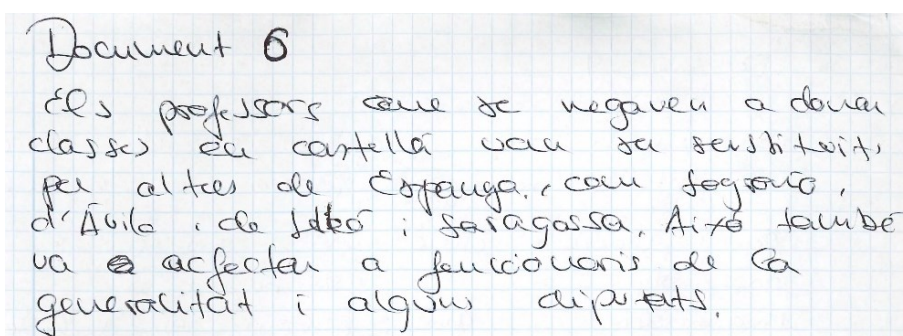 Document 6
Els professors que se negaven a donar
classes en castellà van ser sustituits
per altres de Espanya, com Segovia,
d'Ávila, de i Saragossa. Aixó també
va acfectar a funcionaris de la
generalitat i alguns diputats.